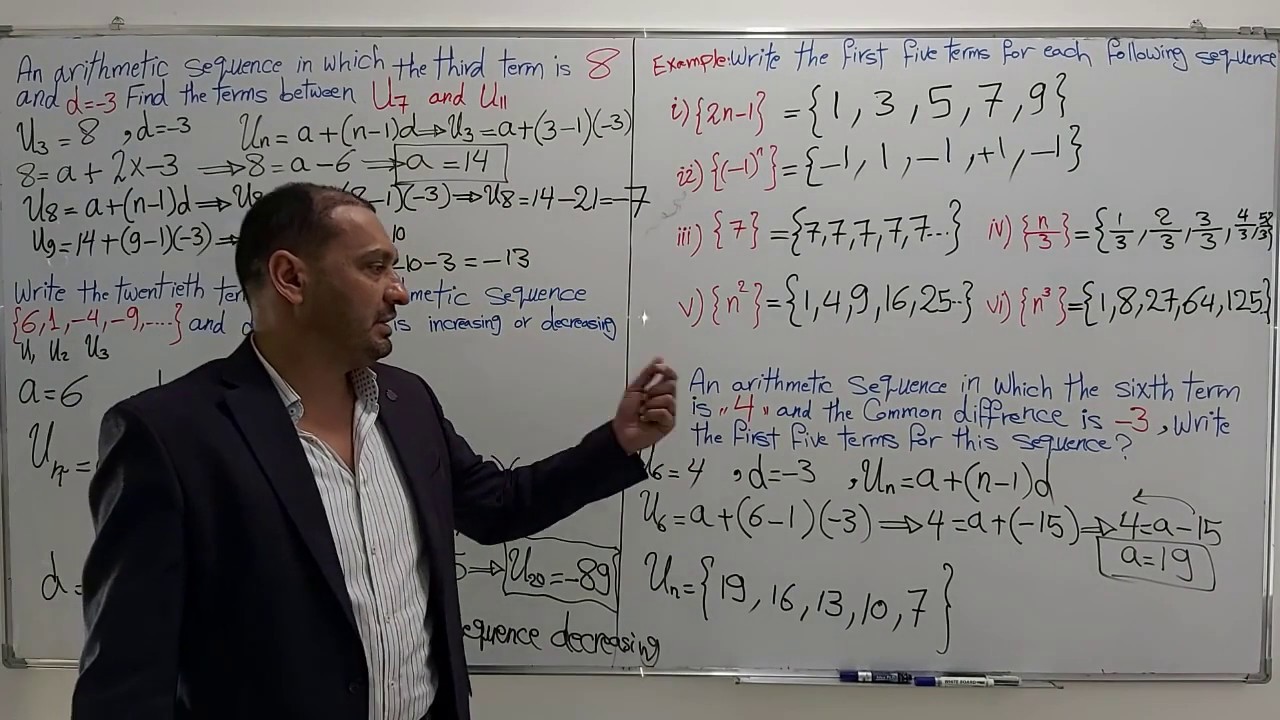 An arithmetic sequence in which the third term is 8
and d=-3 Find the terms between U7 and U11
U₃ = 8 , d=-3 Un = a+(n-1)d ⇒ U₃ = a+(3-1)(-3)
8 = a + 2x-3 ⇒ 8 = a - 6 ⇒ a = 14
U8 = a+(n-1)d ⇒ U8 -1)(-3) ⇒ U8 = 14-21 = -7
U9 = 14+(9-1)(-3) ⇒ 10
-10-3 = -13
Write the twentieth metic sequence
{6,1,-4,-9,....} and is increasing or decreasing
U₁ U₂ U₃
a = 6
d =
5 ⇒ U20 = -89
equence decreasing
Example: Write the first five terms for each following sequence
i) {2n-1} = {1, 3, 5, 7, 9}
ii) {(-1)ⁿ} = {-1, 1, -1, +1, -1}
iii) {7} = {7,7,7,7,7...} iv) {n/3} = {1/3, 2/3, 3/3, 4/3, 5/3}
v) {n²} = {1,4,9,16,25..} vi) {n³} = {1,8,27,64,125}
An arithmetic sequence in which the sixth term
is "4" and the Common diffrence is -3, Write
the first five terms for this sequence?
6 = 4 , d=-3 , Un = a+(n-1)d
U6 = a+(6-1)(-3) ⇒ 4 = a+(-15) ⇒ 4 = a-15
a = 19
Un = {19, 16, 13, 10, 7}
WHITE BOARD